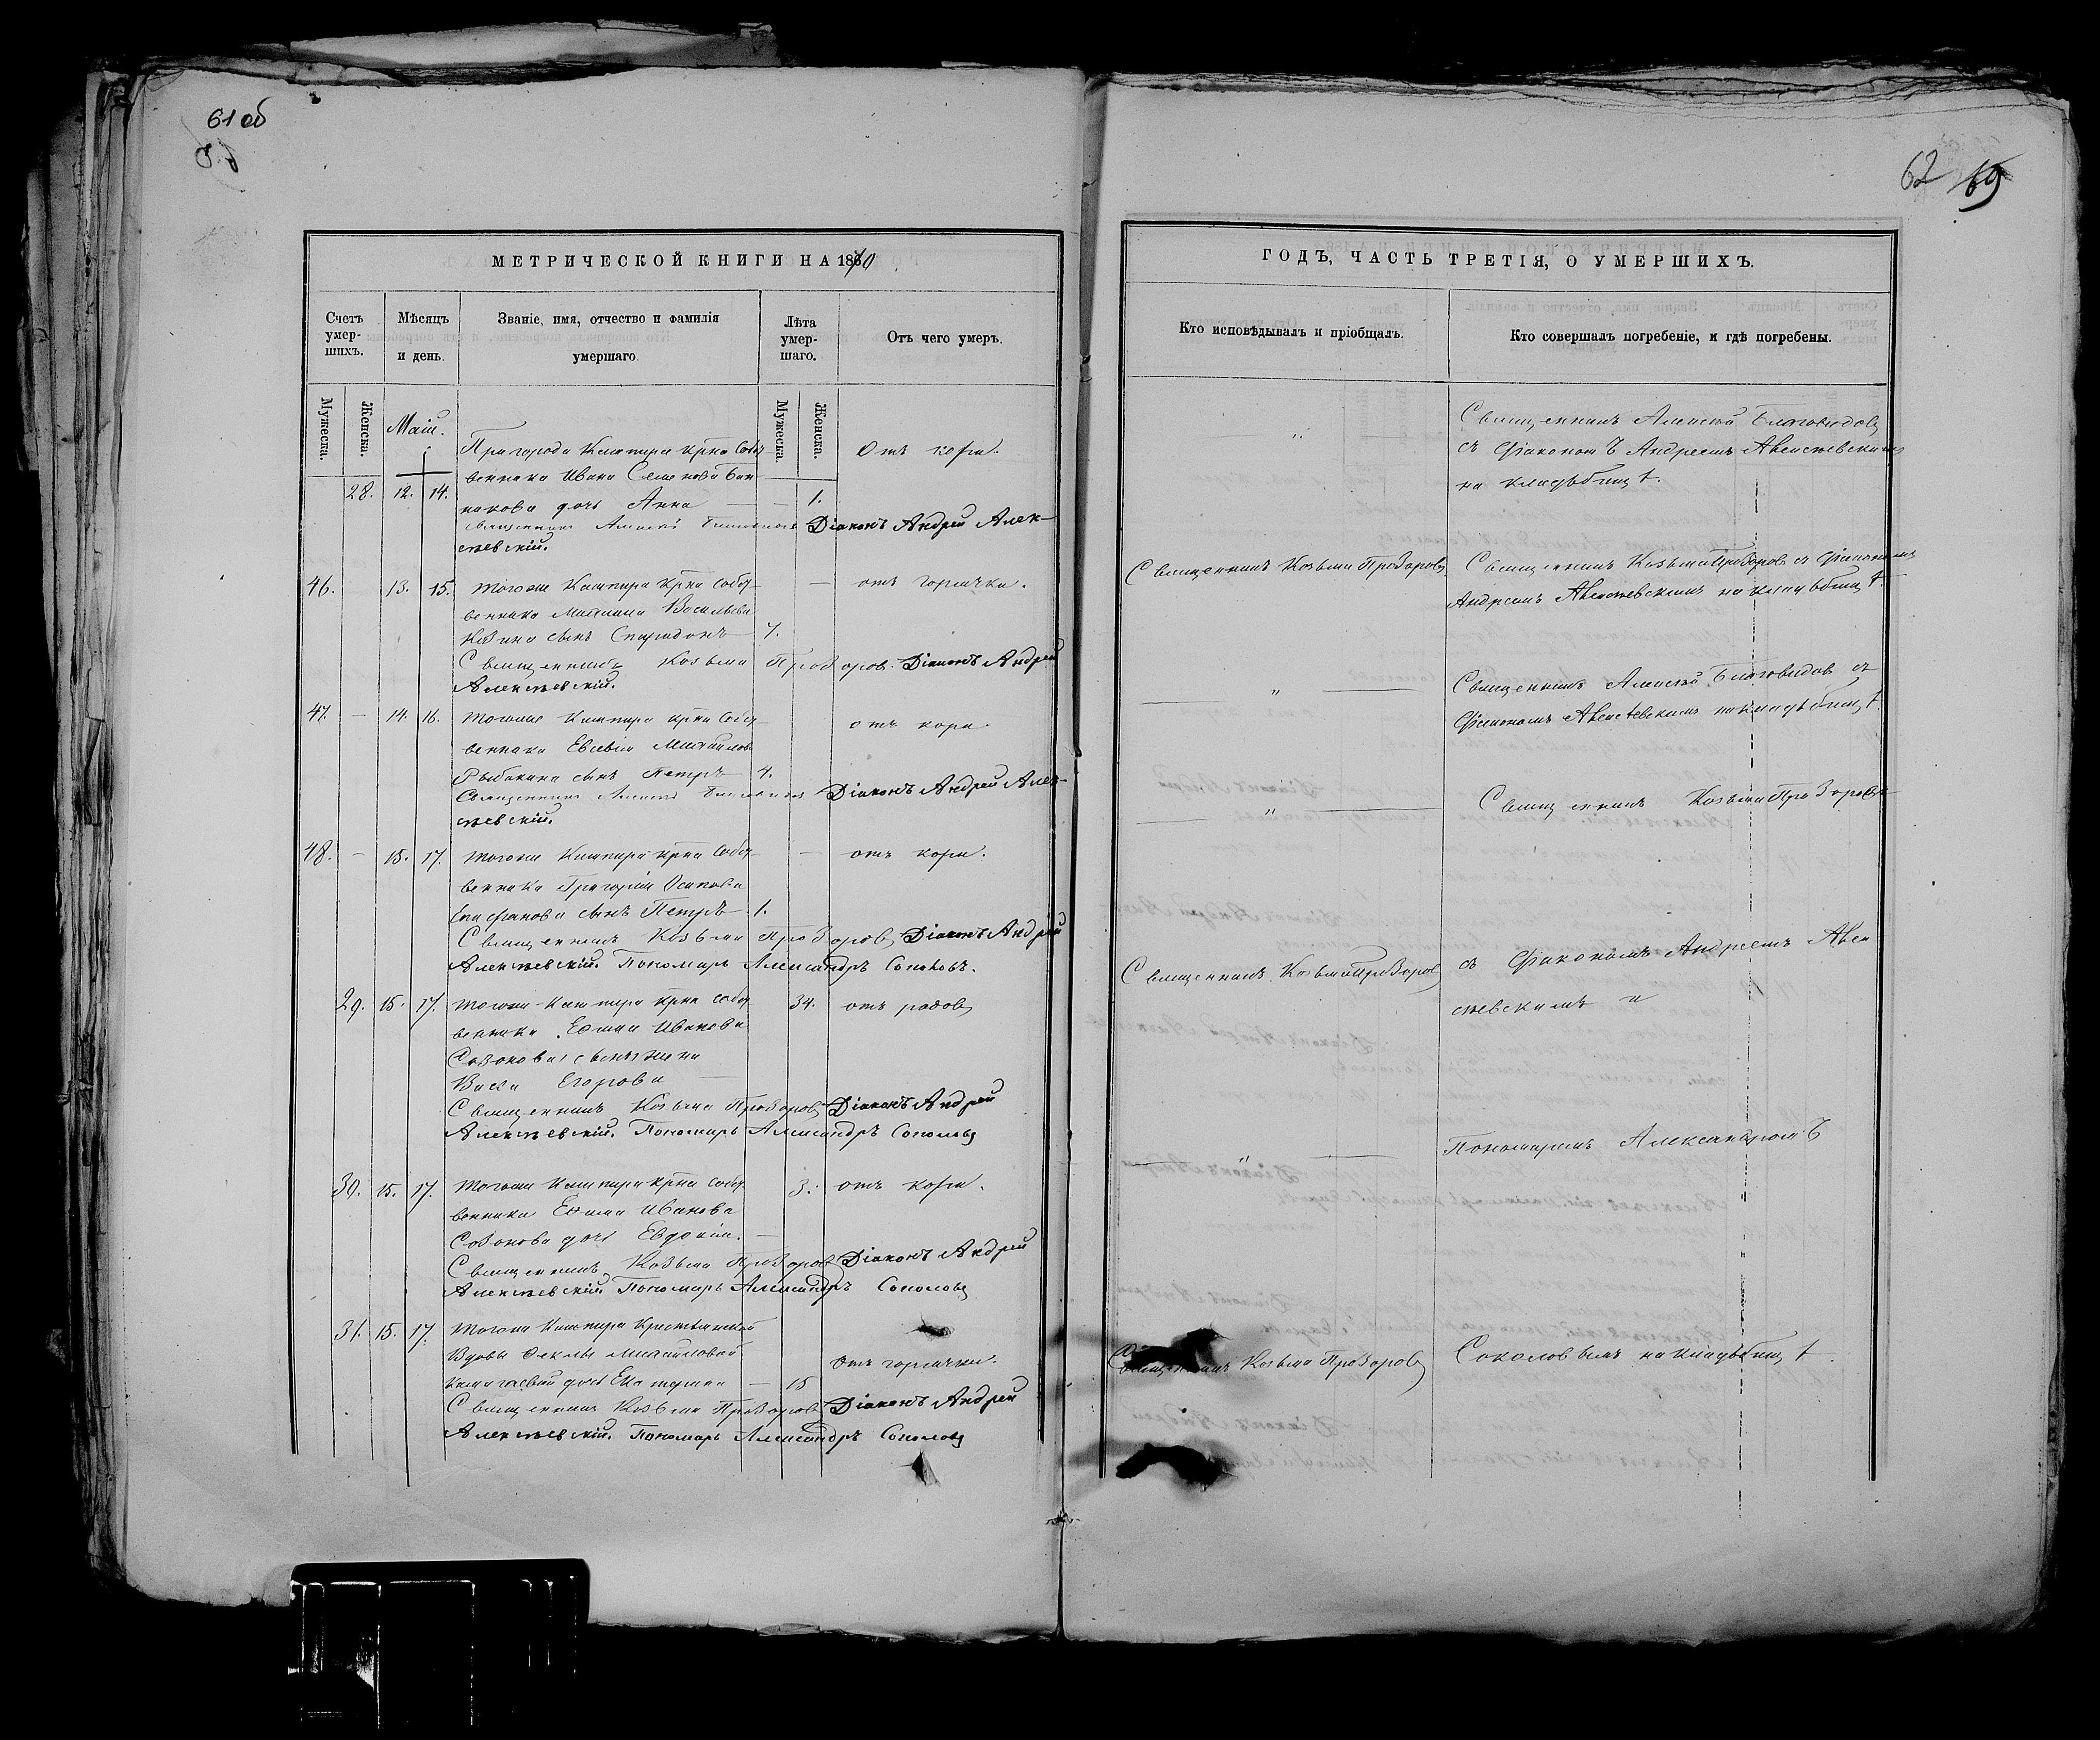 61 об
62 69
МЕТРИЧЕСКОЙ КНИГИ НА 1870
Счетъ умер-шихъ.
Мѣсяцъ и день.
Званіе, имя, отчество и фамилія умершаго.
Лѣта умер-шаго.
Отъ чего умеръ.
Мужеска. Женска.
Мужеска. Женска.
Маій.
Пригорода Кашпира крна собст
28. 12. 14. венника Ивана Семенова
дочь Анна — 1. Отъ кори.
Священникъ Алексій Благовидовъ Діаконъ Андрей Алек-
сѣевскій.
46. 13. 15. Тогоже Кашпира крна собст — отъ горячки.
венника Васильева
сынъ Спиридонъ 7.
Священникъ Козьма Прозоровъ. Діаконъ Андрей
Алексѣевскій.
47. — 14. 16. Тогоже Кашпира крна собст отъ кори
венника Евсевія Михайлова
Рыбакина сынъ Петръ 4.
Священникъ Алексій Благовидовъ Діаконъ Андрей Алек-
сѣевскій.
48. — 15. 17. Тогоже Кашпира крна собст — отъ кори.
венника Григорія Осипова
Епифанова сынъ Петръ — 1.
Священникъ Козьма Прозоровъ Діаконъ Андрей
Алексѣевскій. Пономарь Александръ Соколовъ.
29. 15. 17. Тогоже Кашпира крна собст 34. отъ родовъ
венника Ефима Иванова
Созонова жена
Васса Егорова —
Священникъ Козьма Прозоровъ Діаконъ Андрей
Алексѣевскій. Пономарь Александръ Соколовъ
30. 15. 17. Тогоже Кашпира крна собст 3. отъ кори.
венника Ефима Иванова
Созонова дочь Евдокія. —
Священникъ Козьма Прозоровъ Діаконъ Андрей
Алексѣевскій. Пономарь Александръ Соколовъ
31. 15. 17. Тогоже Кашпира крестьянской
вдовы Феклы Михайловой отъ горячки.
дочь Екатерина — 15
Священникъ Козьма Прозоровъ Діаконъ Андрей
Алексѣевскій. Пономарь Александръ Соколовъ
ГОДЪ, ЧАСТЬ ТРЕТІЯ, О УМЕРШИХЪ.
Кто исповѣдывалъ и пріобщалъ.
Кто совершалъ погребеніе, и гдѣ погребены.
Священникъ Алексѣй Благовидовъ
„ съ Діакономъ Андреемъ Алексѣевскимъ
на кладбищѣ.
Священникъ Козьма Прозоровъ Священникъ Козьма Прозоровъ съ Діакономъ
Андреемъ Алексѣевскимъ на кладбищѣ.
— „ — Священникъ Алексѣй Благовидовъ съ
Діакономъ Алексѣевскимъ на кладбищѣ.
— „ — Священникъ Козьма Прозоровъ
Священникъ Козьма Прозоровъ съ Діакономъ Андреемъ Алек
сѣевскимъ и
— „ — Пономаремъ Александромъ
Священникъ Козьма Прозоровъ Соколовымъ на кладбищѣ.